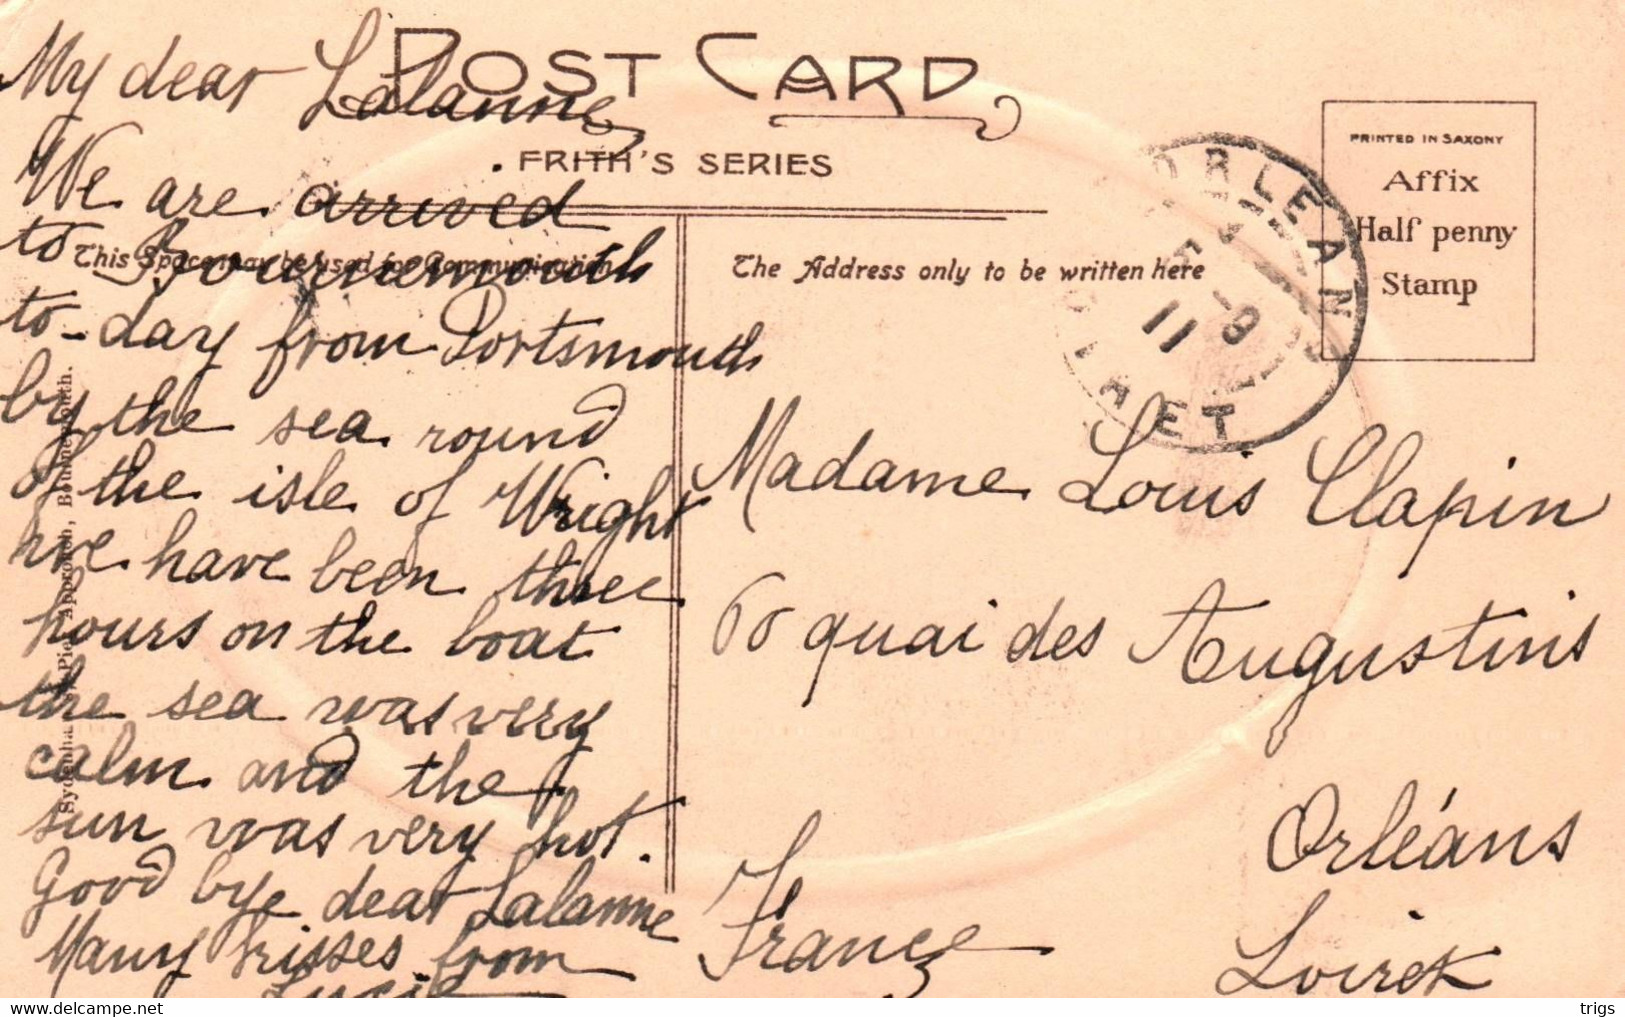 POST CARD
FRITH'S SERIES
This Space may be used for Communication
The Address only to be written here
PRINTED IN SAXONY
Affix
Half penny
Stamp
ORLEANS
LOIRET
11
My dear Lalanne
We are arrived
to Bournemouth
to-day from Portsmouth
by the sea round
of the isle of Wright
we have been three
hours on the boat
the sea was very
calm and the
sun was very hot.
Good bye dear Lalanne
Many kisses from
Madame Louis Clapin
60 quai des Augustins
Orléans
Loiret
France
Pier Approach, Bournemouth.
trigs